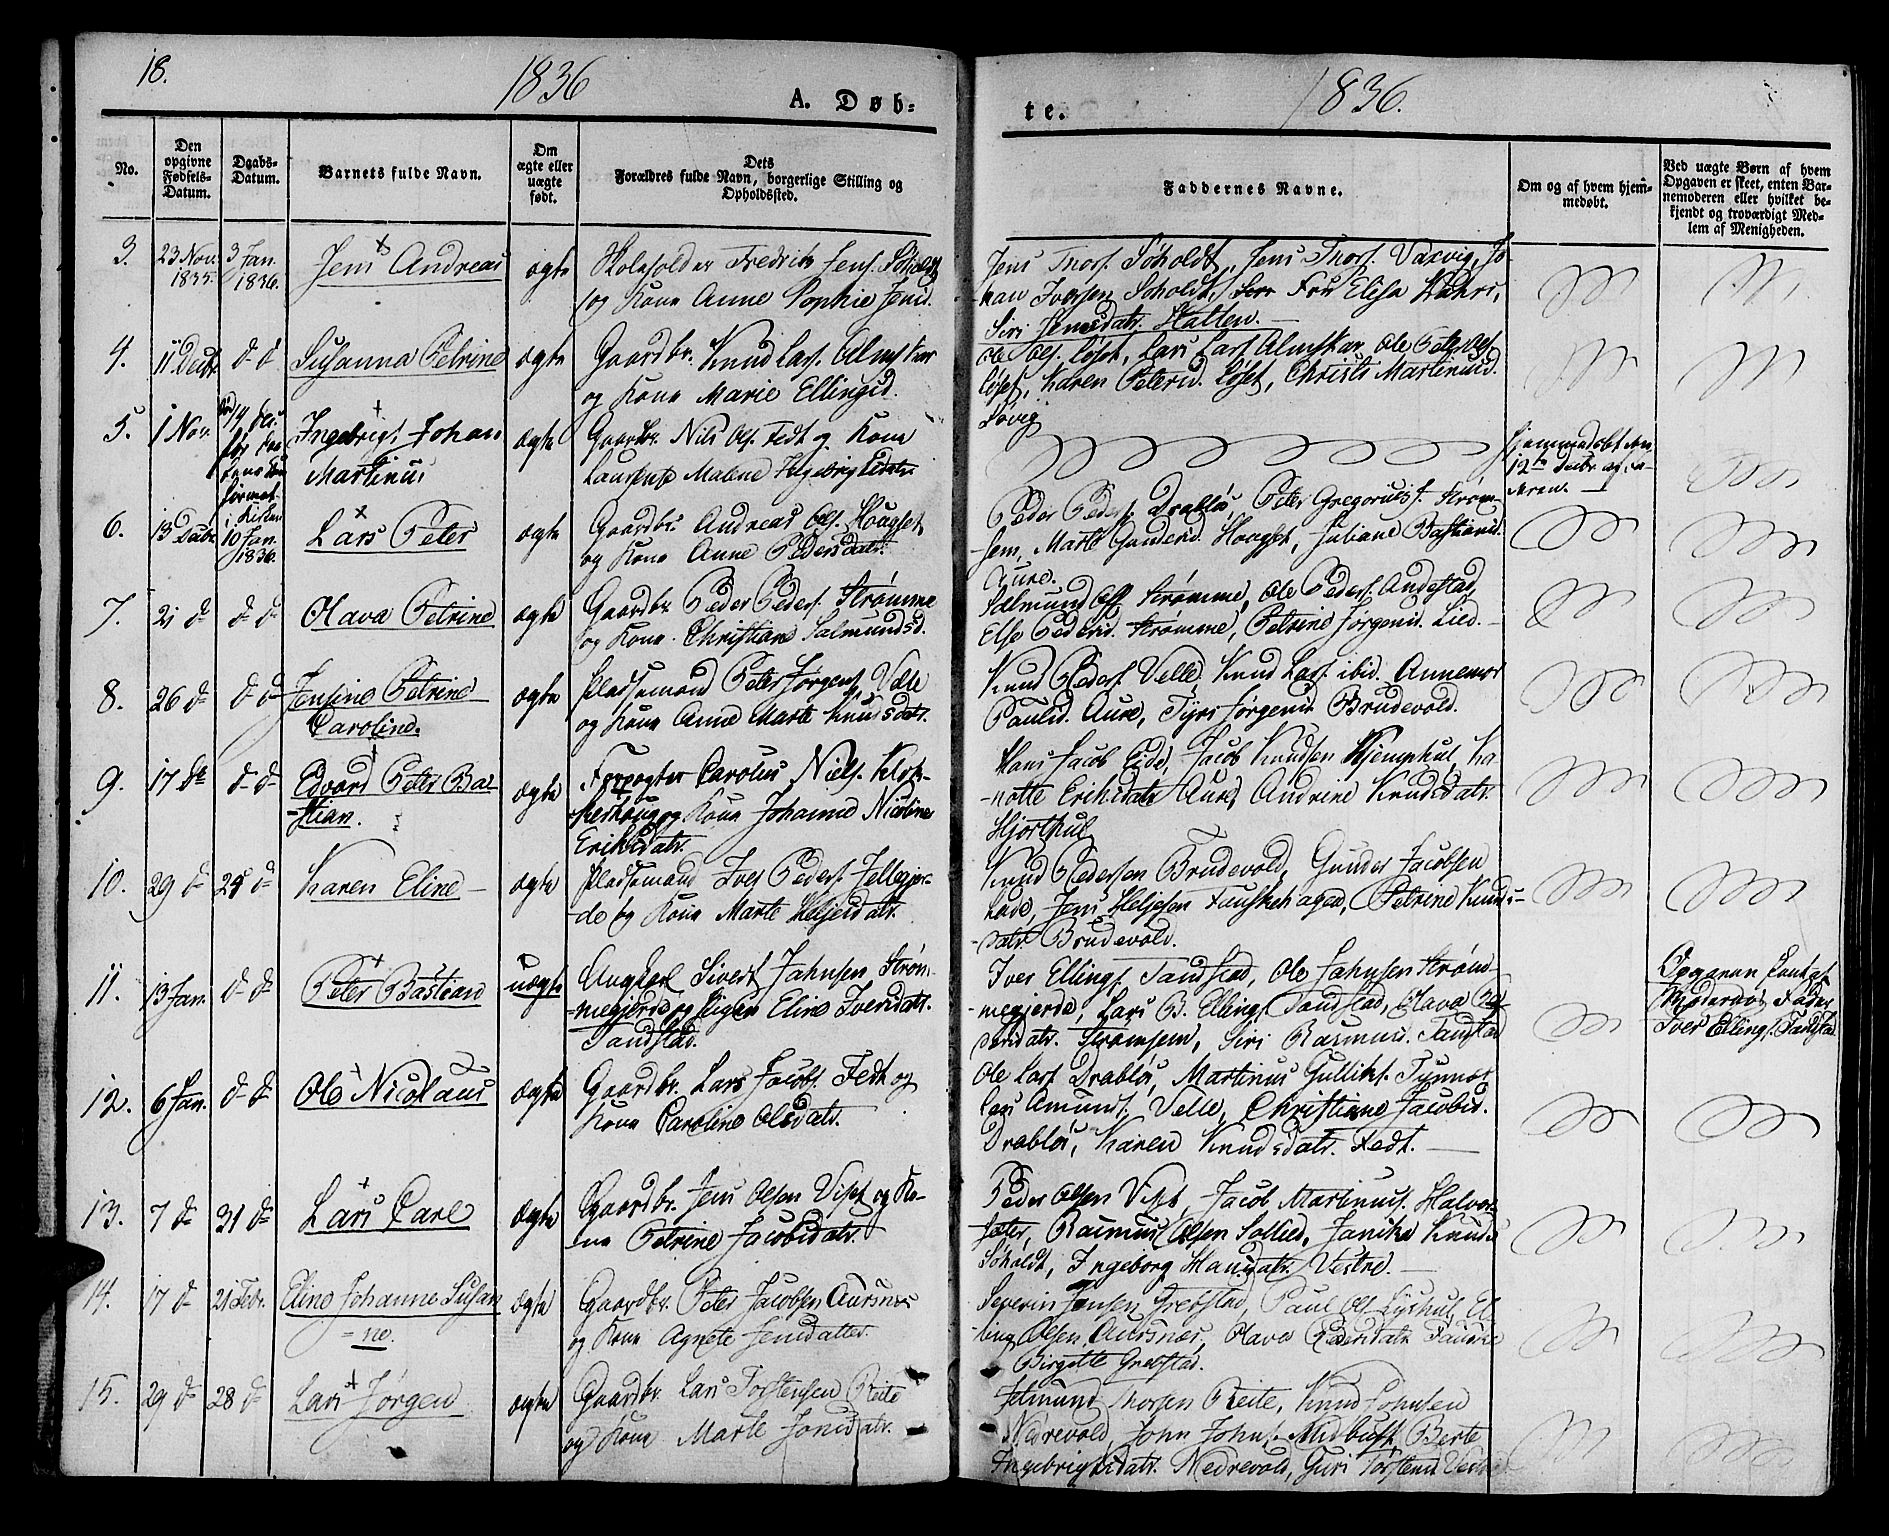 18.
1836
A. Døb-
te.
1836.
No.
Den opgivne Fødsels-Datum.
Daabs-Datum.
Barnets fulde Navn.
Om ægte eller uægte født.
Dets Forældres fulde Navn, borgerlige Stilling og Opholdssted.
Faddernes Navne.
Om og af hvem hjem-medøbt.
Ved uægte Børn af hvem Opgaven er skeet, enten Bar-nemoderen eller hvilket be-kjendt og troværdigt Med-lem af Menigheden.
3. 23 Nov. 1835. 3 Jan. 1836. Jens Andreas ægte
Skoleholder Fredrik Jens.
og Kone Anne Sophie Jensd.
Jens Thors. Søholdt, Jens Thors. Vaxvig, Jo-
han Iversen Søholdt, Fru Elisa
Siri Jensdatr. Hatlen. —
4. 11 Decbr. d d Susanna Petrine ægte
Gaardbr. Knud Lars. Almskar
og Kone Marie Ellingsd.
Ole Ols. Løset, Lars Lars. Almskar, Ole Peters.
Løset, Karen Petersd. Løset, Christi Martinusd.
Søvig
5. 1 Nov. Ingebrigt Johan
Martinus ægte
Gaardbr. Nils Ols. Fedt og Kone
Laurense Malene Ingebrigtsdatr
hjemmedøbt den
12te Decbr. af Fa-
deren. —
6. 13 Decbr 10 Jan. 1836. Lars Peter ægte
Gaardbr. Andreas Ols. Haagset
og Kone Anne Pedersdatr.
Peder Peders. Drabløs, Peter Gregorius. Strøm-
sem, Marte Gundersd. Haagset, Juliane Bastiansd.
Aure.
7. 21 d d d Olava Petrine ægte
Gaardbr. Peder Peders. Strømme
og Kone Christiane Salmundsd.
Salmund Ols. Strømme, Ole Peders. Andestad,
Else Pedersd. Strømme, Petrine Jørgensd. Lied. —
8. 26 d d d Jensine Petrine
Caroline. ægte
Pladsemand Peter Jørgens. Velle
og Kone Anne Marte Knudsdatr.
Knud Peders. Velle, Knud Lars. ibid. Annemor
Paulsd. Aure, Jørgensd. Brudevold.
9. 17 d d d Edvard Peter Ba-
stian. ægte
Forpagter Carolus Niels. Klok-
kerhaug og Kone Johanne Nicoline
Eriksdatr.
Hans Jacob Eide, Jacob Knudsen Hjemphul, Ha-
notte Eriksdatr Aure, Andrine Knudsdatr.
Hjorthul
10. 29 d 24 d Karen Eline — ægte
Pladsemand Iver Peders. Fellegjer-
de og Kone Marte Heljesdatr.
Knud Pedersen Brudevold, Gunder Jacobsen
Lade, Jens Heljesen Fauskehagen, Petrine Knuds-
datr Brudevold.
11. 13 Jan. d d Peter Bastian uægte
Ungkarl Sivert Jahnsen Strøm-
megjerde og Pigen Eline Iversdatr.
Tandstad.
Iver Ellings. Tandstad, Ole Jahnsen Strøm-
megjerde, Lars B. Ellings. Tandstad, Olava Pe-
dersdatr. Strømsem, Siri Rasmusd. Tandstad
Opgaven
Moderens Fader
Iver Ellings. Tandstad
12. 6 Jan. d d Ole Nicolaus ægte
Gaardbr. Lars Jacobs. Fedt og
Kone Caroline Olsdatr.
Ole Lars. Drabløs, Martinus Gulliks. Tynnes
Lars Amunds. Velle, Christiane Jacobsd.
Drabløs, Karen Knudsdatr. Fedt. —
13. 7 d 31 d Lars Carl ægte
Gaardbr. Jens Olsen Viset og Ko-
ne Petrine Jacobsdatr.
Peder Olsen Viset, Jacob Martinus. Halvor-
sæter, Rasmus Olsen Sollied, Janike Knuds
Søholdt, Ingeborg Hansdatr. Vestre. —
14. 17 d 21 Febr. Eline Johanne Susan-
ne. ægte
Gaardbr. Peter Jacobsen Aursnes
og Kone Agnete Jensdatter.
Severin Jensen Grebstad, Paul Ols. Lyshul, El-
ling Olsen Aursnes, Olava Pedersdatr.
Birgitte Grebstad.
15. 29 d 28 d Lars Jørgen ægte
Gaardbr. Lars Torstensen Reite
og Kone Marte Jonsdatr.
Thorsen Reite, Knud Johnsen
Nedrevold, John Johns. Midbust, Berte
Ingebrigtsdatr. Nedrevold, Guri Torstensd.